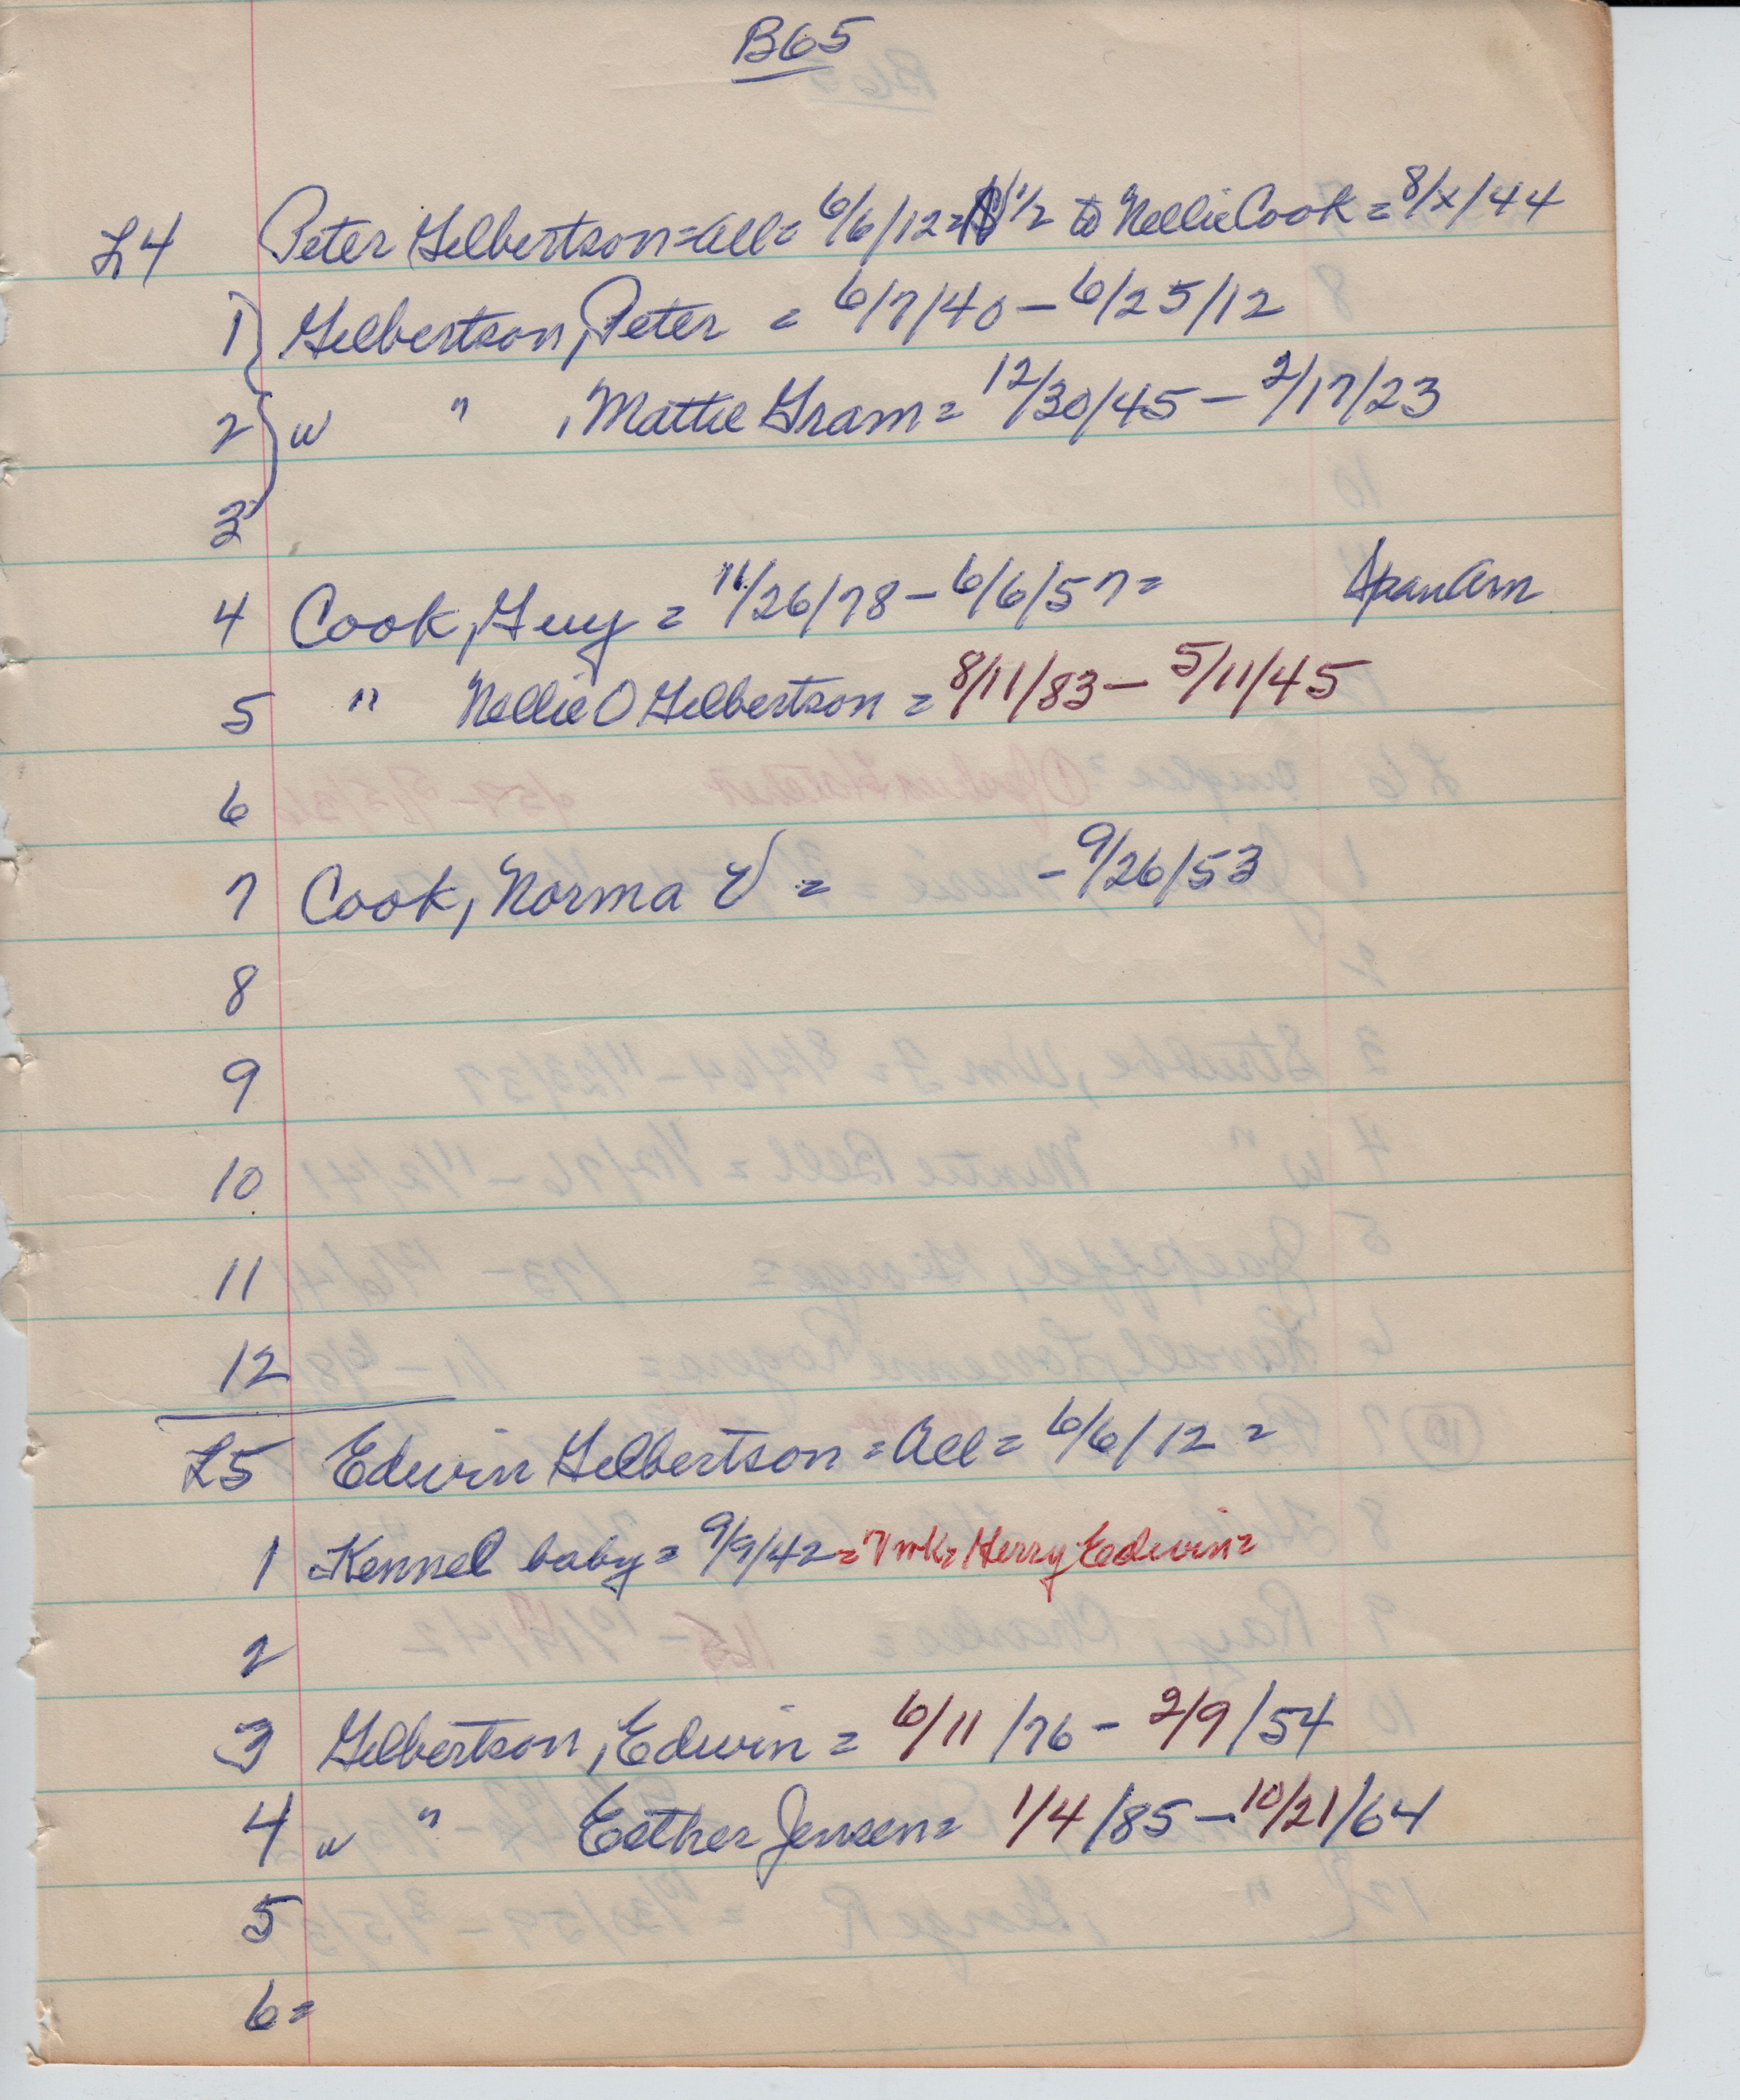 B65
L4 Peter Gilbertson = all = 6/6/12 = 1/2 to Nellie Cook = 8/x/44
1 Gilbertson, Peter = 6/7/40 – 6/25/12
2 w " , Mattie Gram = 12/30/45 – 2/17/23
3
4 Cook, Guy = 11/26/78 – 6/6/57 = SpanAm
5 " Nellie O Gilbertson = 8/11/83 – 5/11/45
6
7 Cook, Norma V = - 9/26/53
8
9
10
11
12
L5 Edwin Gilbertson = All = 6/6/12 =
1 Kennel baby = 9/9/42 = 7 mk = Herry Eedwin =
2
3 Gilbertson, Edwin = 6/11/76 – 2/9/54
4 w " Esther Jensen = 1/4/85 – 10/21/64
5
6 =